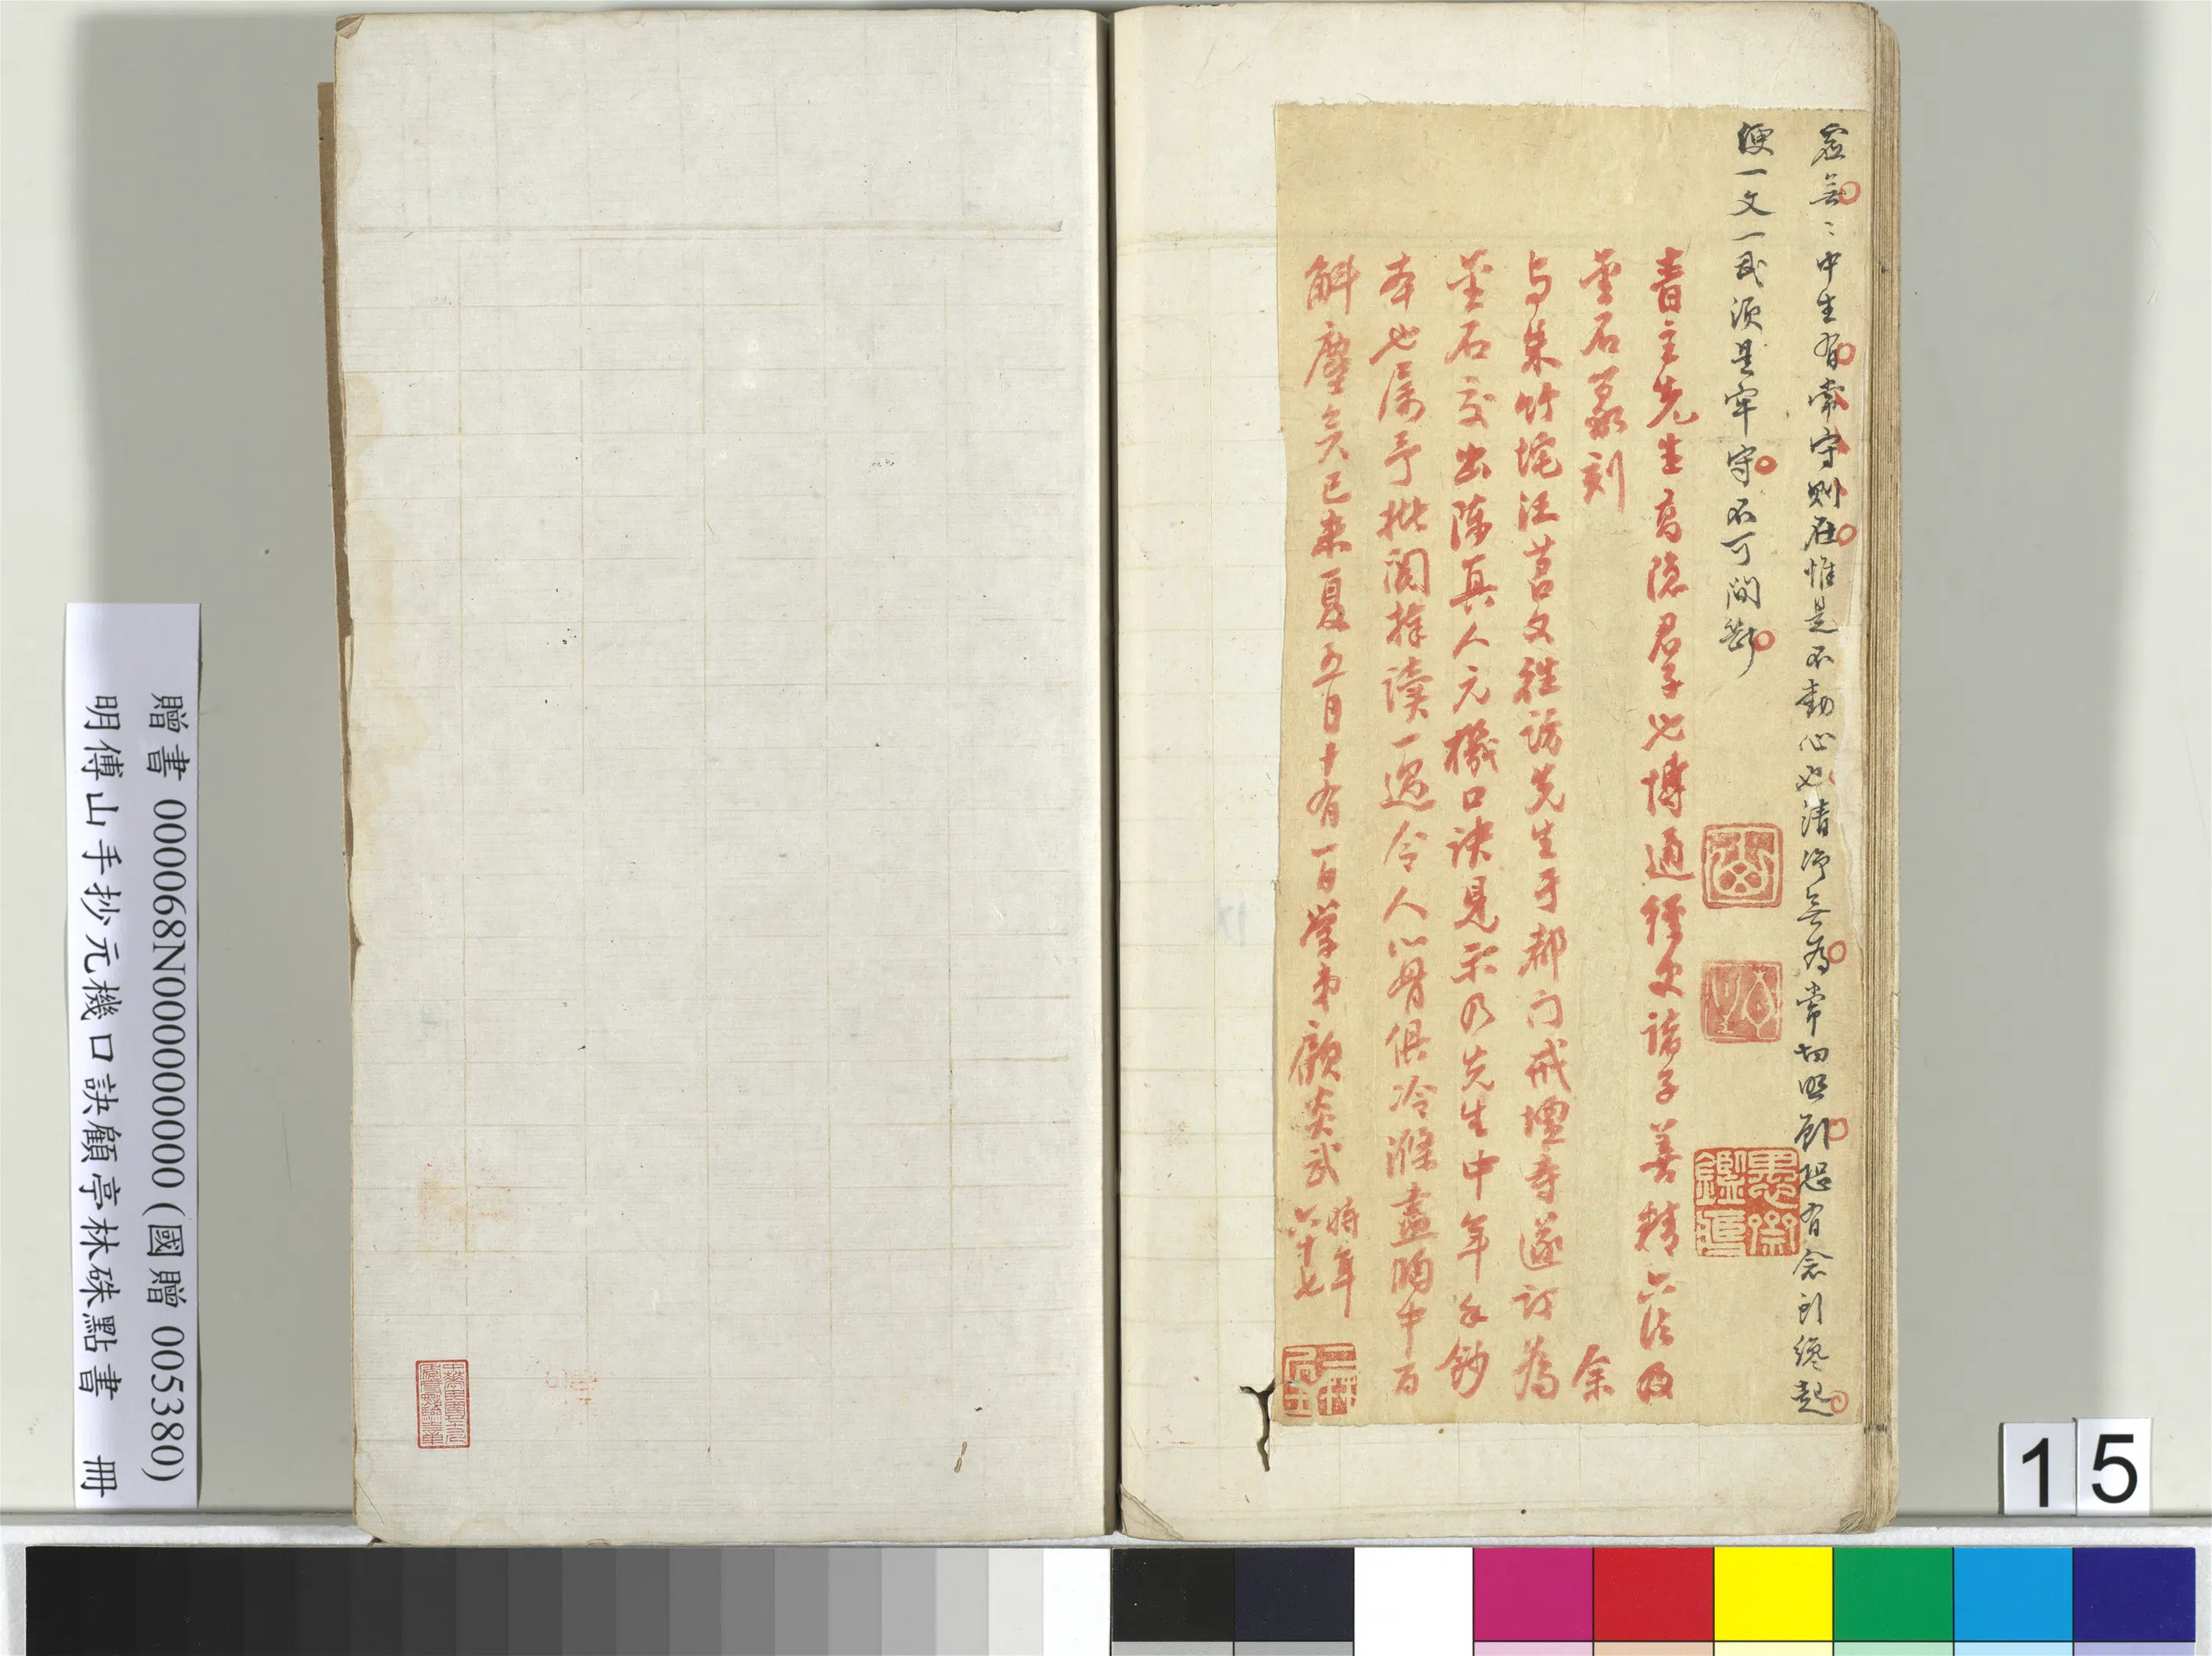 虛無〻中生有常守則在惟是不動心也清淨無為常切照顧恐有念頭纔起
便一文一武須是牢守不可間斷
青主先生高隱君子也博通經史諸子善精六法及
金石篆刻 余
与朱竹垞汪苕文往訪先生于都门戒壇寺遂订為
金石交出陳真人元機口诀見示乃先生中年手鈔
本也属予批閲捧读一過令人心骨俱冷滌盡胸中百
斛塵矣己未夏五月十有一日學弟顧炎武 時年
六十七
贈書 000068N000000000 (國贈 005380)
明傅山手抄元機口訣顧亭林硃點書 冊
15